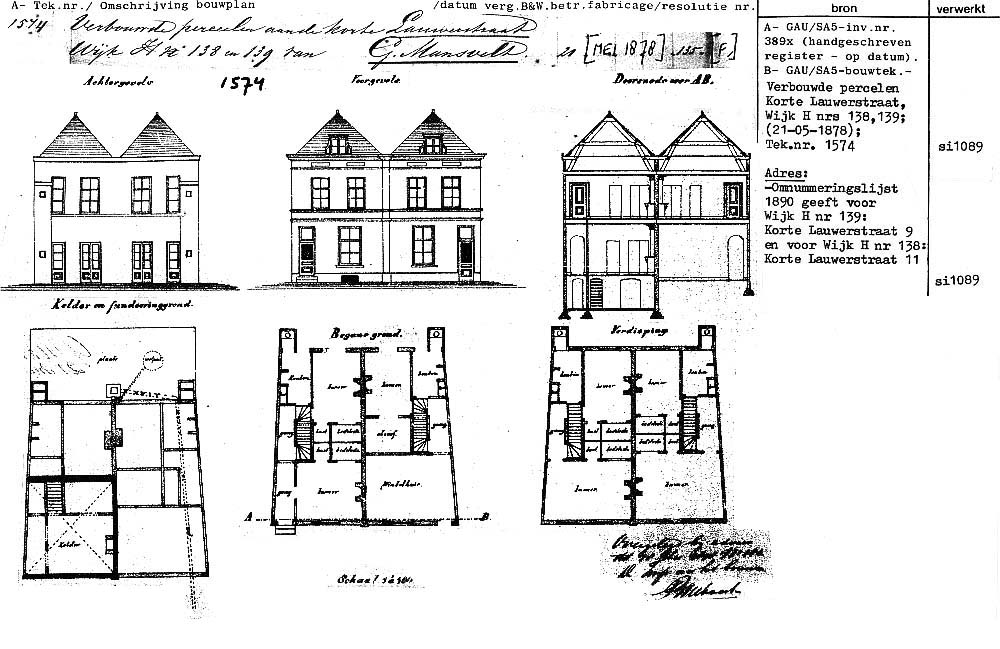 A- Tek.nr./ Omschrijving bouwplan /datum verg.B&W.betr.fabricage/resolutie nr.
bron verwerkt
1574 Verbouwde perceelen aan de korte Lauwerstraat
Wijk H no 138 en 139 van G. Mansvelt. 21 [MEI 1878] [F]
Achtergevels 1574 Voorgevels. Doorsnede over AB.
A- GAU/SA5-inv.nr.
389x (handgeschreven
register - op datum).
B- GAU/SA5-bouwtek.-
Verbouwde percelen
Korte Lauwerstraat,
Wijk H nrs 138,139;
(21-05-1878);
Tek.nr. 1574 si1089
Adres:
-Omnummeringslijst
1890 geeft voor
Wijk H nr 139:
Korte Lauwerstraat 9
en voor Wijk H nr 138:
Korte Lauwerstraat 11
si1089
Kelder en fundeeringgrond.
Begane grond. Verdieping
plaats
keuken kamer kamer keuken
kamer kamer
gang kast bedstede alcoof. gang
kast bedstede
gang kast bedstede bedstede kast gang
kast bedstede bedstede kast
gang kamer Winkelhuis.
kamer. kamer.
Kelder
A B
Schaal 1 à 100.